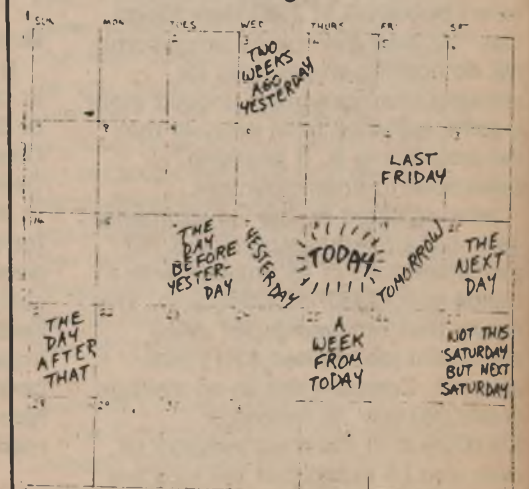 SUN MON TUES WED THURS FRI SAT
2 3 4 5 6
TWO
WEEKS
AGO
YESTERDAY
8
LAST
FRIDAY
14 15
THE
DAY
BEFORE
YESTER-
DAY
YESTERDAY
TODAY
TOMORROW
THE
NEXT
DAY
THE
DAY
AFTER
THAT
23
A
WEEK
FROM
TODAY
NOT THIS
SATURDAY
BUT NEXT
SATURDAY
28 29